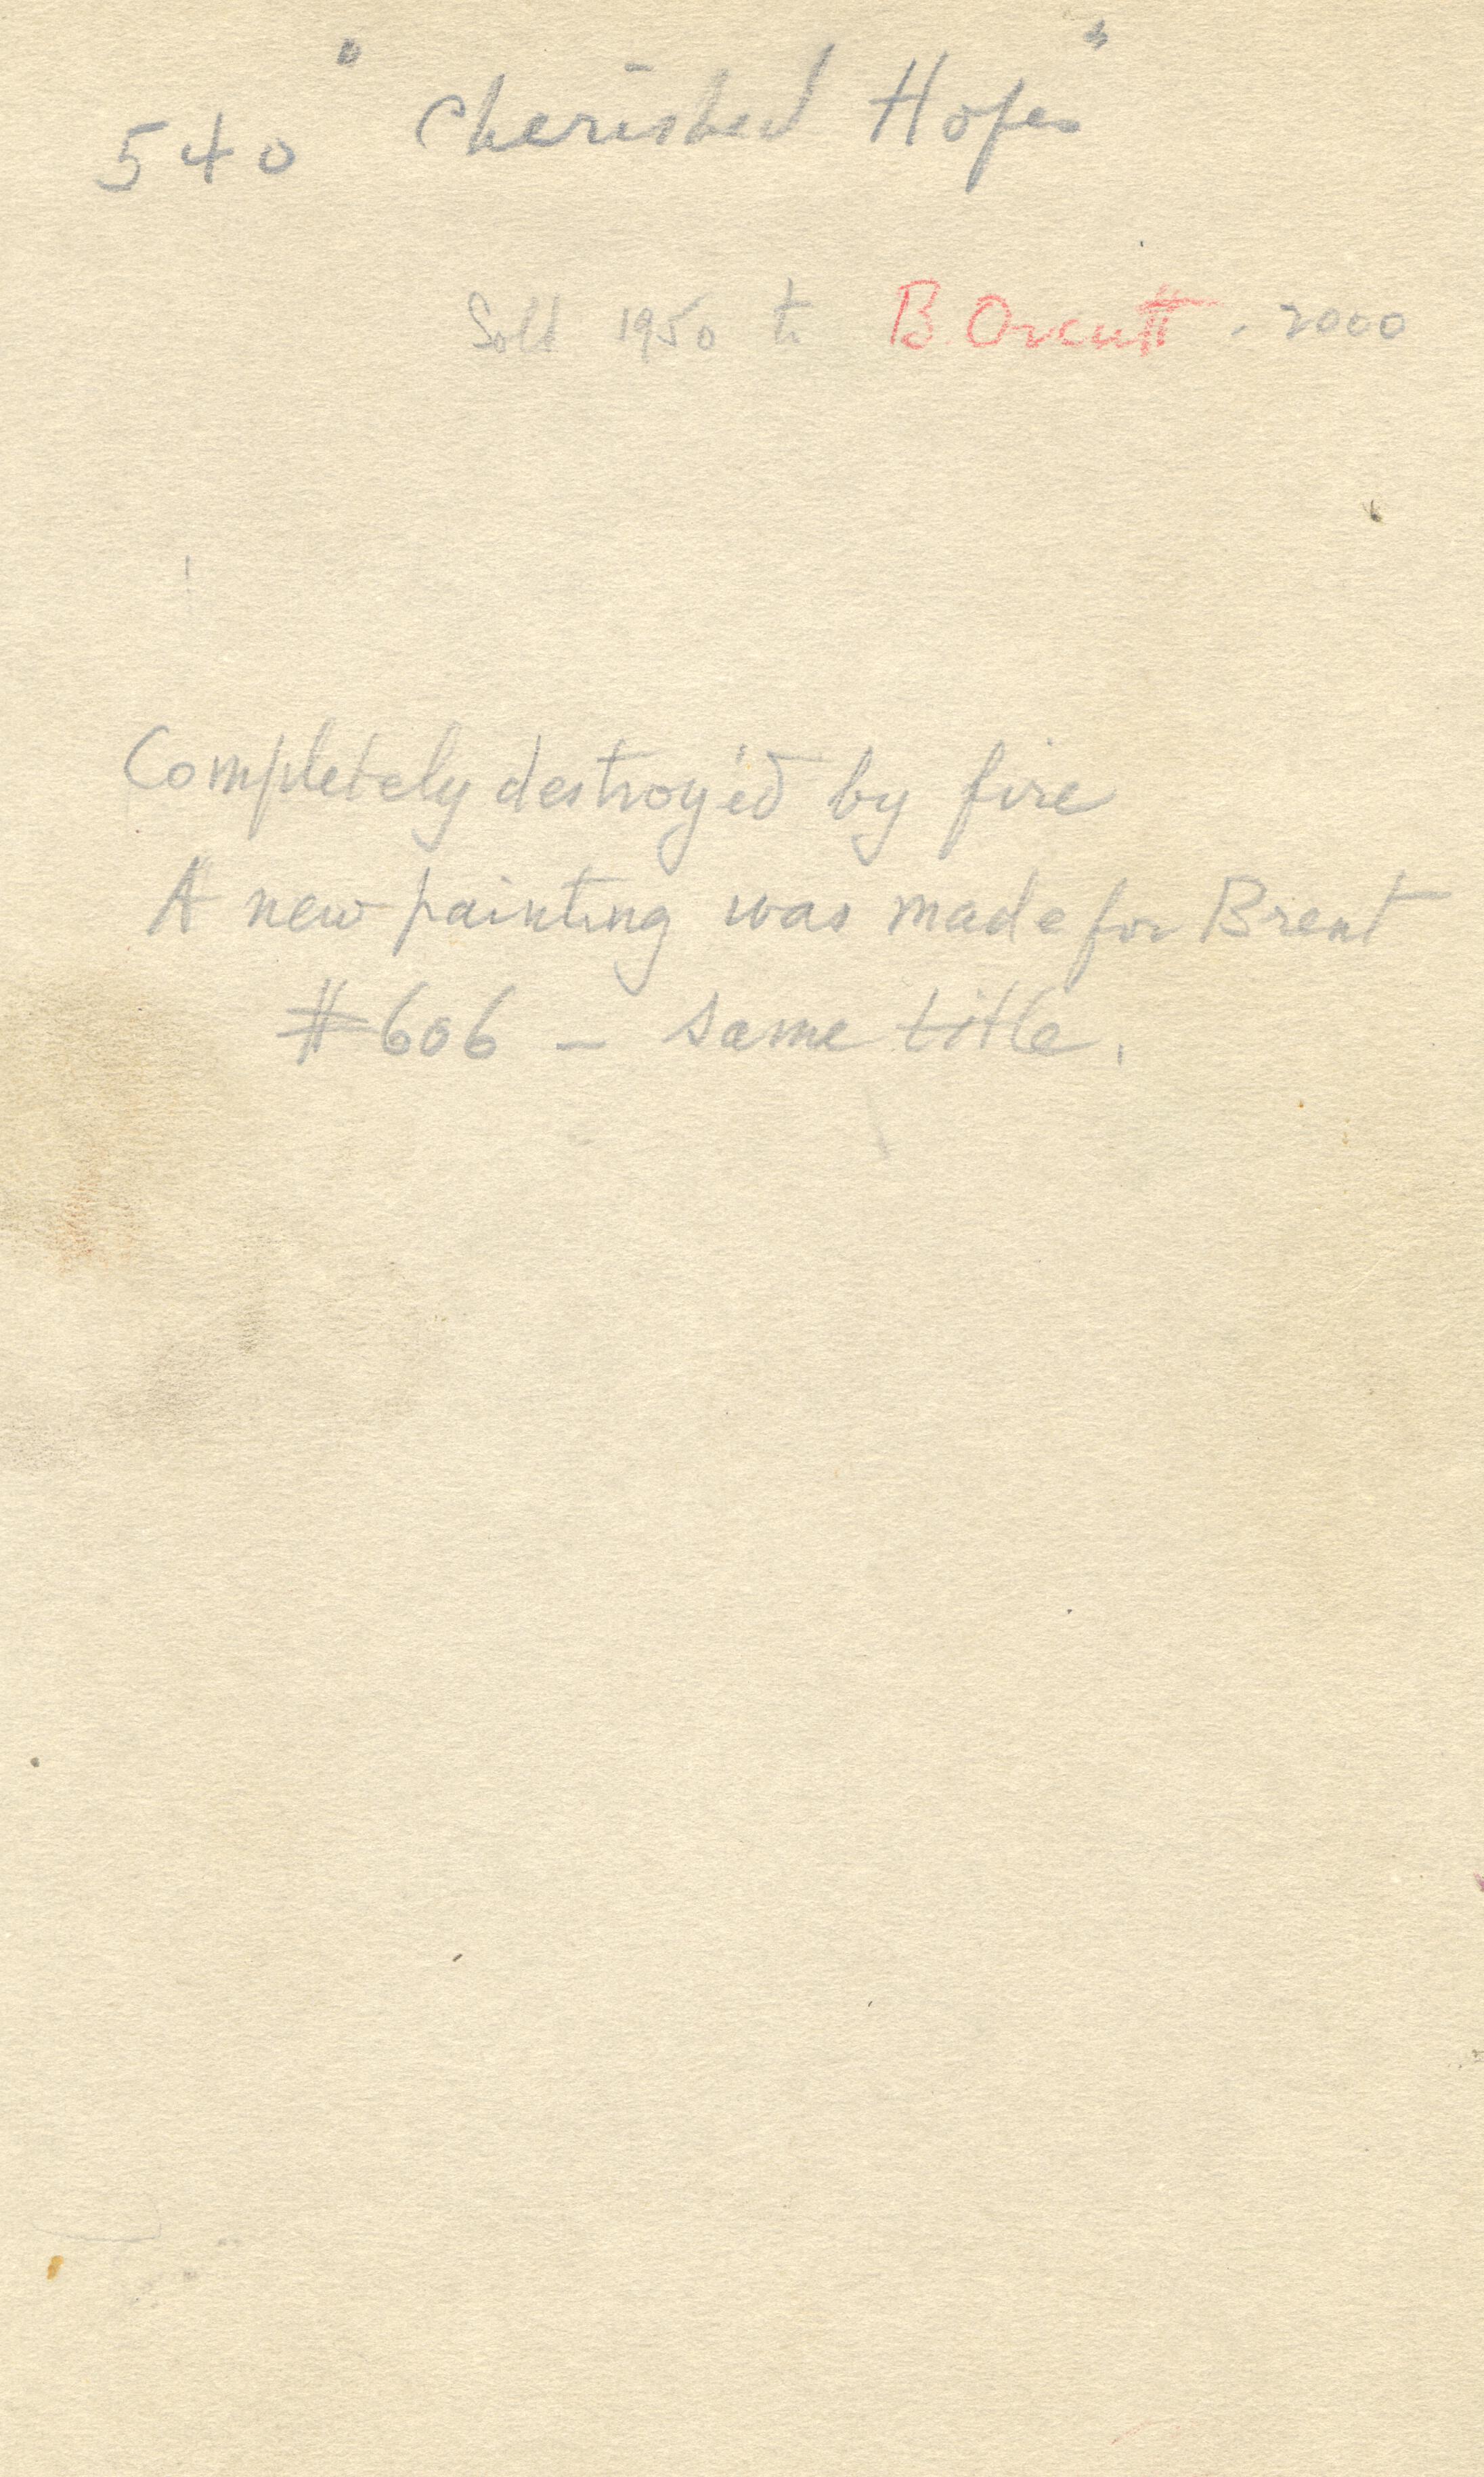 540 "Cherished Hopes"
Sold 1950 to B. Orcutt - 2000
Completely destroy'ed by fire
A new painting was made for Brent
#606 - same title.